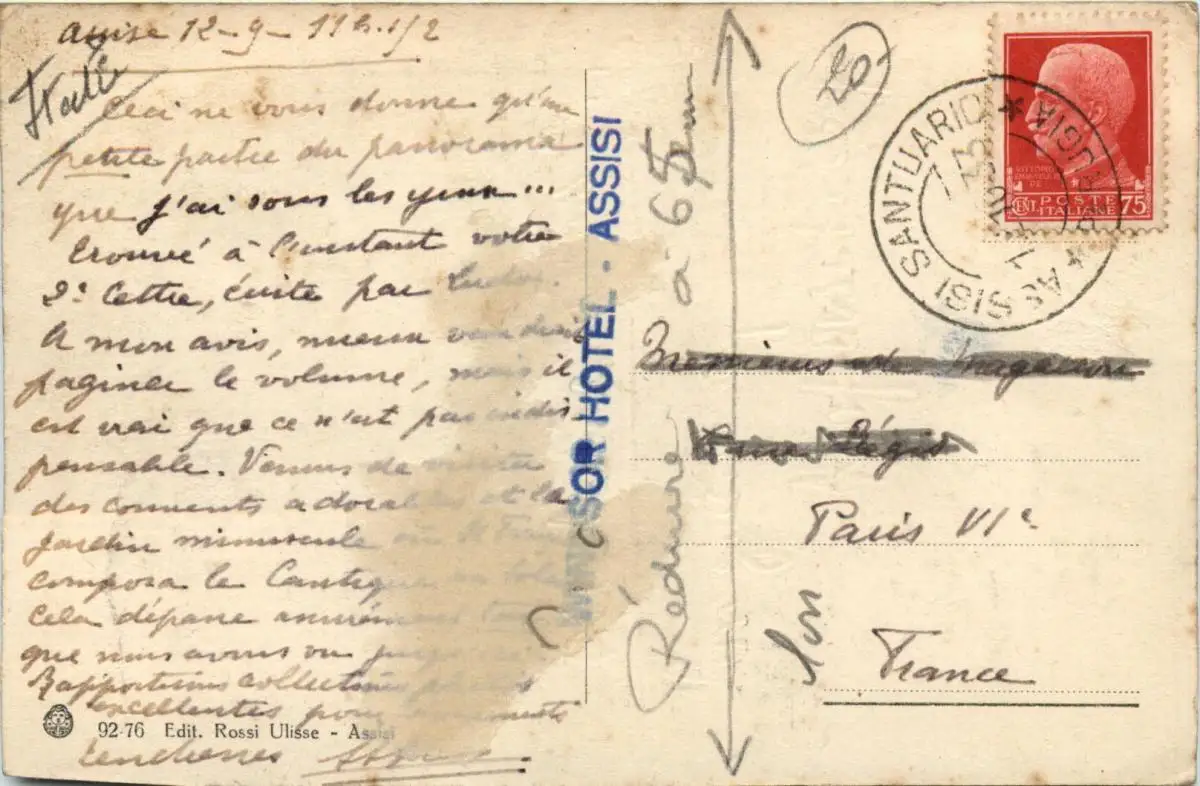 Assise 12-9- 11h. 1/2
Italie
Ceci ne vous donne qu'une
petite partie du panorama
que j'ai sous les yeux...
Trouvé à l'instant votre
2e lettre, écrite par
A mon avis, mieux vaudrait
paginer le volume, mais il
est vrai que ce n'est pas indis
pensable. Venons de visiter
des couvents adorables et le
jardin minuscule où St
composa le Cantique
Cela dépasse
que nous avons vu
Rapporterons collections
excellentes pour
92-76 Edit. Rossi Ulisse - Assisi
Tendresses
SOR HOTEL - ASSISI
Réduire à 65 mm
20
ASSISI SANTUARIO * PERUGIA *
VITTORIO EMANUELE
CENT. POSTE ITALIANE 75
Paris VIe
France